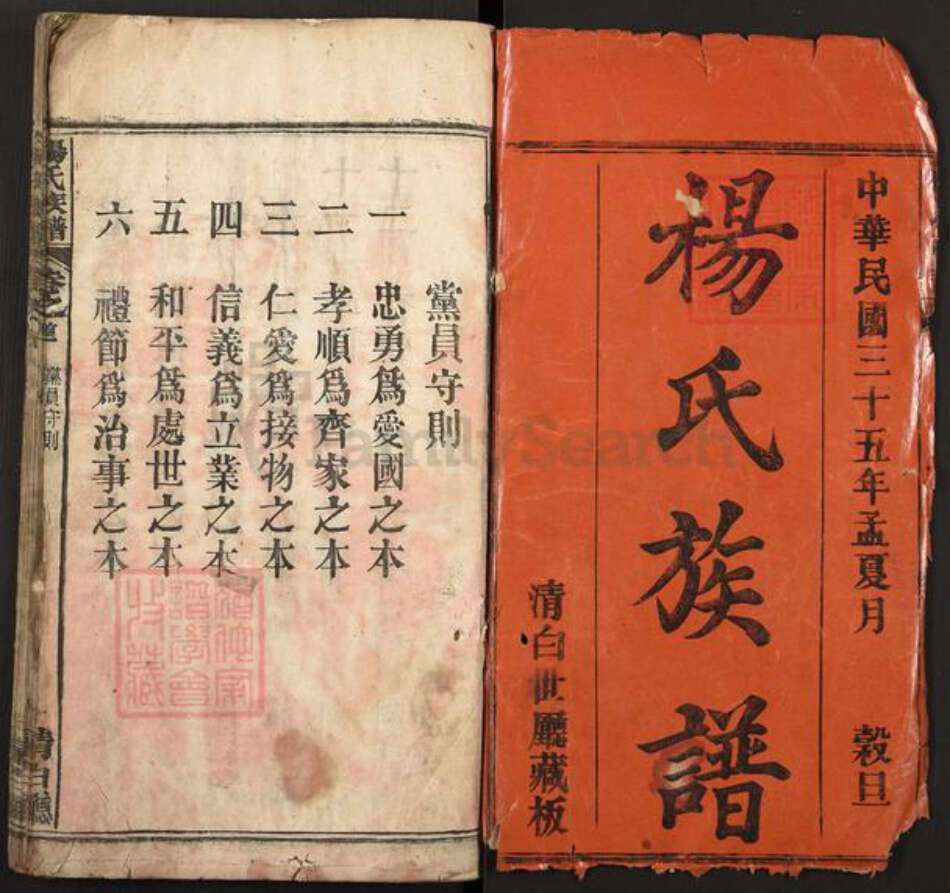 中華民國三十五年孟夏月 穀旦
楊氏族譜
清白世廳藏板
黨員守則
一 忠勇爲愛國之本
二 孝順爲齊家之本
三 仁愛爲接物之本
四 信義爲立業之本
五 和平爲處世之本
六 禮節爲治事之本
楊氏族譜
黨員守則
清白廳
譜學會
收藏
FamilySearch